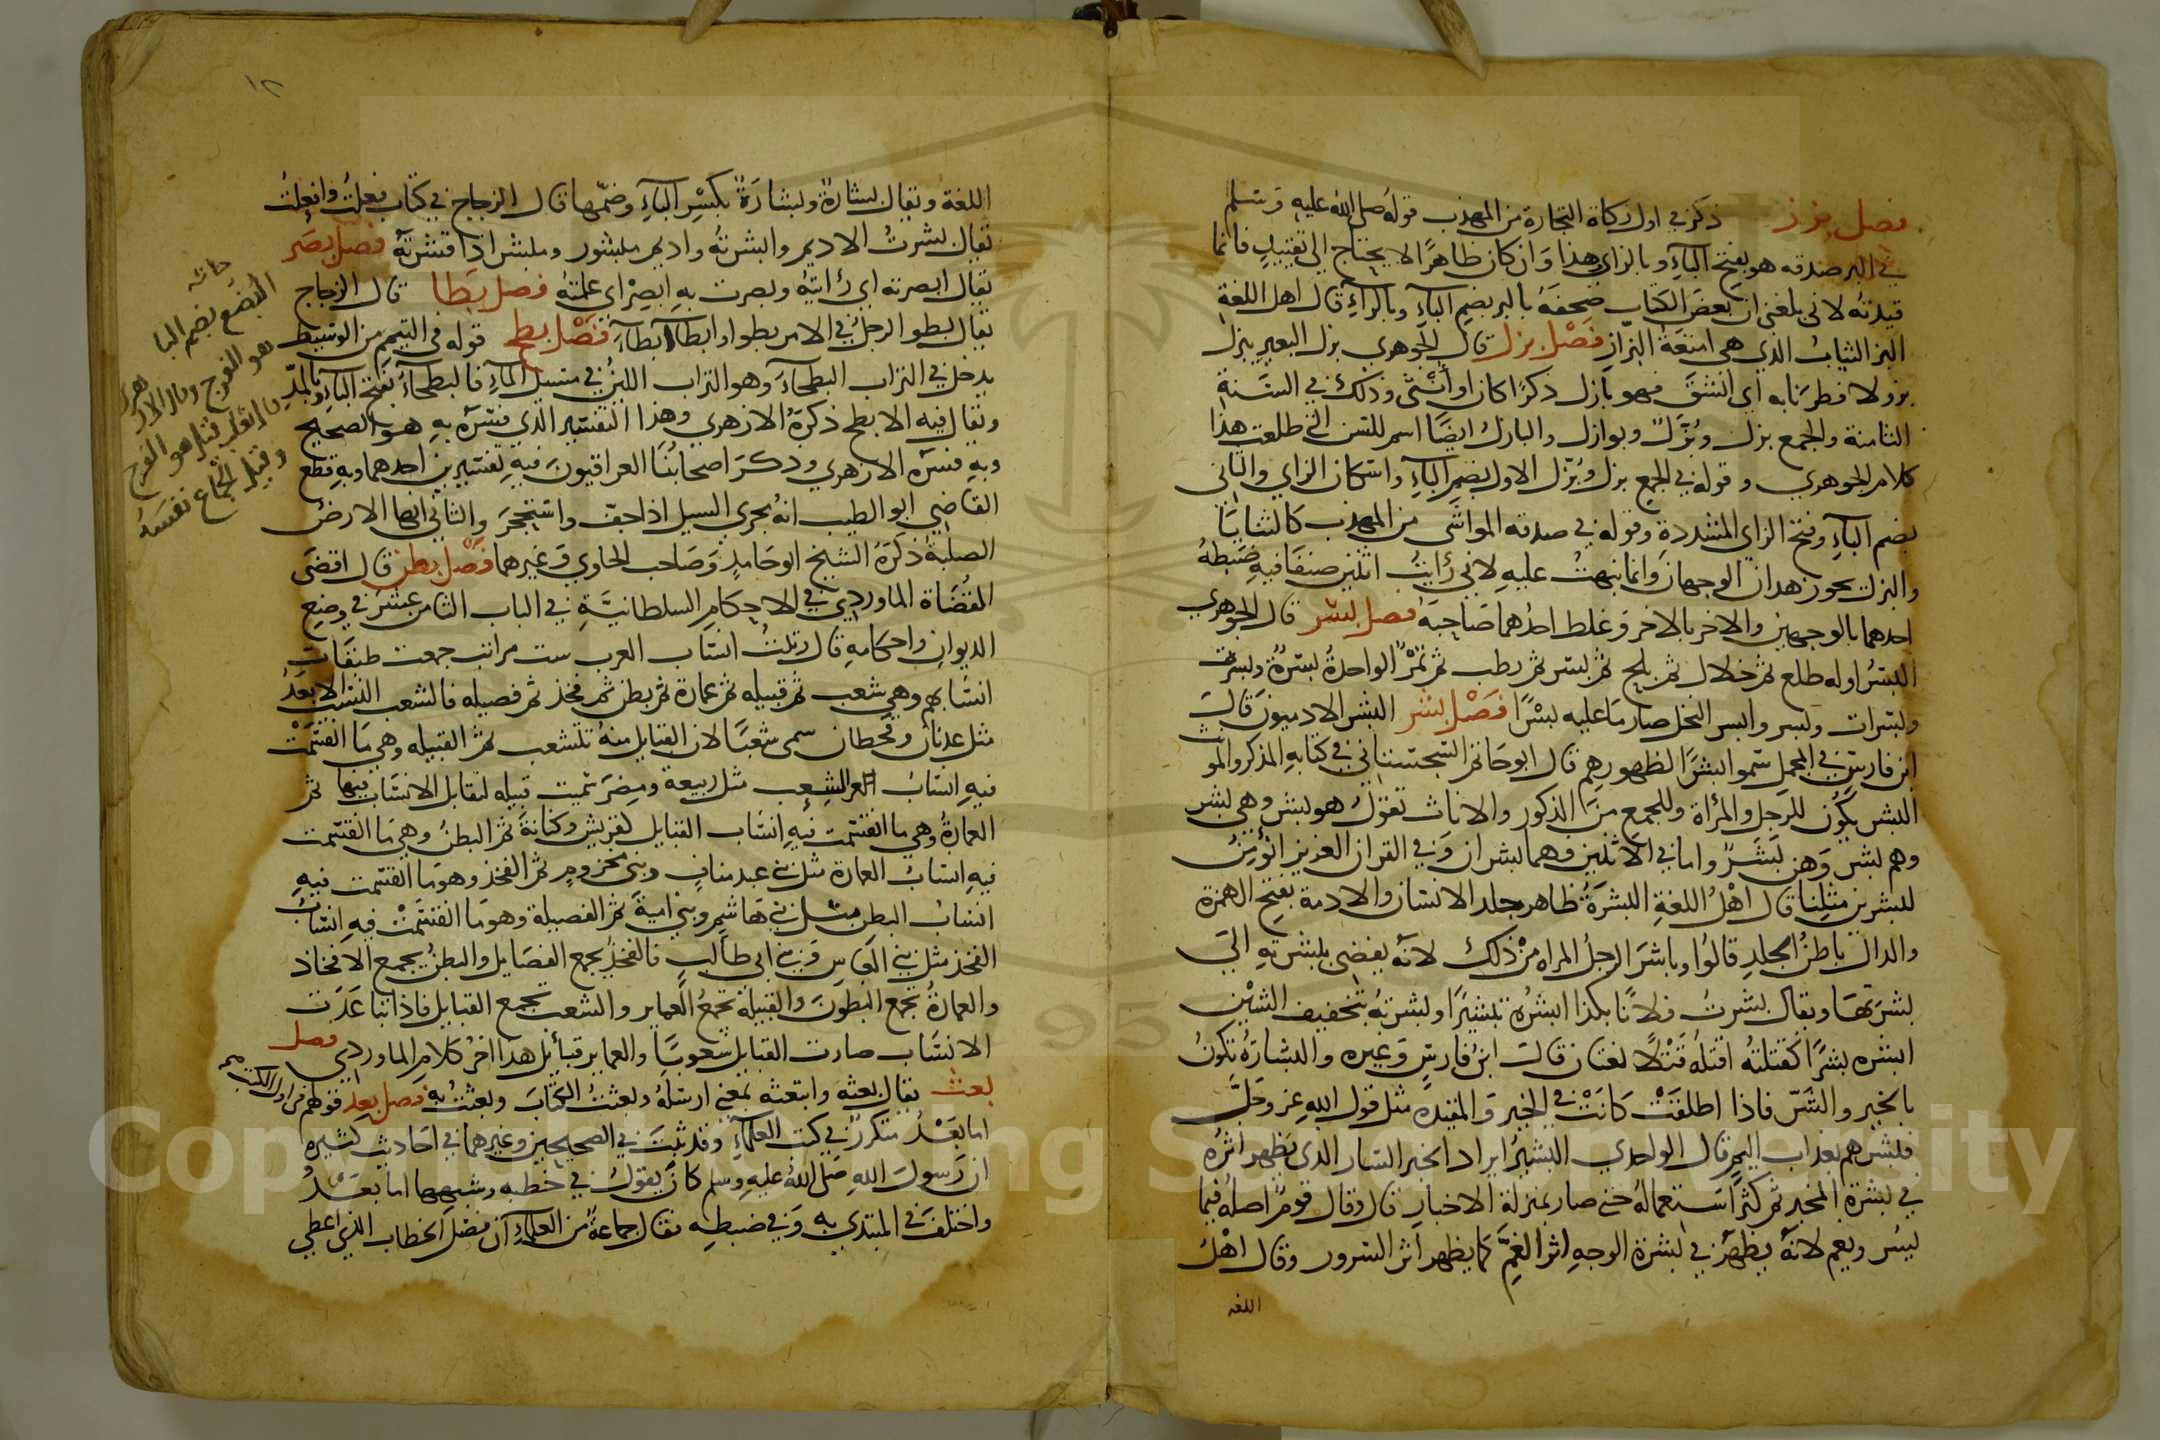 فصل بزز ذكر في اول زكاة التجارة من المهذب قوله صلى الله عليه وسلم
في البر صدقه هو بفتح الباء وبالزاي هذا وان كان ظاهرًا لا يحتاج الى تقييد فانما
قيدته لانى بلغنى ان بعض الكتاب صحفه بالبر بضم الباء وبالراء قال اهل اللغة
البز الثياب الذي هى امتعة البزاز فصل بزل قال الجوهري بزل البعير يبزل
بزولا فطر نابه اى انشق فهو بازل ذكرًا كان او أنثى وذلك في السنة
الثامنة والجمع بزل وبُزّل وبوازل والبازل ايضًا اسم للسن التى طلعت هذا
كلام الجوهري وقوله في الجمع بزل وبُزّل الاول بضم الباء واسكان الزاي والثانى
بضم الباء وفتح الزاي المشددة وقوله في صدقه المواشى من المهذب كالثنايا
والبزل يجوز هذان الوجهان وانما نبهت عليه لانى رأيت اثنين صنفا فيه ضبطه
احدهما بالوجهين والاخر بالاخر وغلط احدهما صاحبه فصل بسر قال الجوهري
البسر اوله طلع ثم خلال ثم بلح ثم بسر ثم رطب ثم تمر الواحدة بسرة وبسرت
وبسرات وبسر وابسر النخل صار ما عليه بسرًا فصل بشر البشر الادميون قال
ابن فارس في المجمل سموا بشرًا لظهورهم قال ابو حاتم السجستاني في كتابه المذكر والمونث
البشر يكون للرجل والمرأة وللجمع من الذكور والاناث تقول هو بشر وهى بشر
وهم بشر وهن بشر واما في الاثنين وهما بشران وفي القران العزيز انؤمن
لبشرين مثلنا قال اهل اللغة البشرة ظاهر جلد الانسان والادمة بفتح الهمزة
والدال باطن الجلد قالوا وباشر الرجل المراه من ذلك لانه يفضي ببشرته الى
بشرتها ويقال بشرت فلانًا بكذا ابشره تبشيرًا وبشرته بتخفيف الشين
ابشره بشرًا كقتلته اقتله قتلًا لغتان قال ابن فارس وغيره والبشارة تكون
بالخير والشر فاذا اطلقت كانت في الخير والمقيدة مثل قول الله عز وجل
فبشرهم بعذاب اليم قال الواحدي التبشير ايراد الخبر السار الذى يظهر اثره
في بشرة المخبر ثم كثر استعماله حتى صار بمنزلة الاخبار قال وقال قوم اصله فيما
يسُر ويغم لانه يظهر في بشرة الوجه اثر الغم كما يظهر اثر السرور وقال اهل
اللغه
١٢
اللغة ويقال بشارة وبشارة بكسر الباء وضمها قال الزجاج في كتاب فعلت وافعلت
يقال بشرت الاديم وابشرته واديم مبشور ومبشر اذا قشرته فصل بصر
يقال ابصرته اى رأيته وبصرت به ابصر اى علمته فصل بطا قال الزجاج
يقال بطو الرجل في الامر بطوا وابطا ابطاء فصل بطح قوله فى التيمم من الوسيط
يدخل في التراب البطحاء وهو التراب اللين في مسيل الماء فالبطحاء بفتح الباء وبالمد
ويقال فيه الابطح ذكره الازهري وهذا التفسير الذي فسره به هو الصحيح
وبه فسره الازهري وذكر اصحابنا العراقيون فيه تفسيرين احدهما وبه قطع
القاضي ابو الطيب انه مجرى السيل اذا جف واستحجر والثاني انها الارض
الصلبة ذكره الشيخ ابو حامد وصاحب الحاوي وغيرهما فصل بطن قال اقضى
القضاة الماوردي في الاحكام السلطانية في الباب الثامن عشر في وضع
الديوان واحكامه قال رتبت انساب العرب ست مراتب جمعت طبقات
انسابهم وهي شعب ثم قبيله ثم عمارة ثم بطن ثم فخذ ثم فصيله فالشعب النسب الابعد
مثل عدنان وقحطان سمى شعبًا لان القبايل منه تتشعب ثم القبيله وهي ما انقسمت
فيه انساب الشعب مثل ربيعة ومضر سميت قبيله لتقابل الانساب فيها ثم
العمارة وهي ما انقسمت فيه انساب القبايل كقريش وكنانة ثم البطن وهي ما انقسمت
فيه انساب العمارة مثل بني عبد مناف وبنى مخزوم ثم الفخذ وهو ما انقسمت فيه
انساب البطن مثل بني هاشم وبني امية ثم الفصيلة وهو ما انقسمت فيه انساب
الفخذ مثل بني العباس وبني ابى طالب فالفخذ يجمع الفصايل والبطن يجمع الافخاذ
والعمارة تجمع البطون والقبيلة تجمع العماير والشعب يجمع القبايل فاذا تباعدت
الانساب صارت القبايل شعوبًا والعماير قبائل هذا اخر كلام الماوردي فصل
بعث يقال بعثه وابتعثه بمعنى ارسله وبعثت الكتاب وبعثت به فصل بعد قولهم في اول الكتب
اما بعد متكرر في كتب العلماء وقد ثبت في الصحيحين وغيرهما في احاديث كثيره
ان رسول الله صلى الله عليه وسلم كان يقول في خطبه وشبهها اما بعد
واختلف في المبتدي به وفي ضبطه فقال جماعة من العلماء ان فصل الخطاب الذي اعطي
حاشه
البضع بضم البا
هو الفرج وقال الازهري
قيل هو الفرج
وقيل الجماع نفسه
Copyright © King Saud University
195